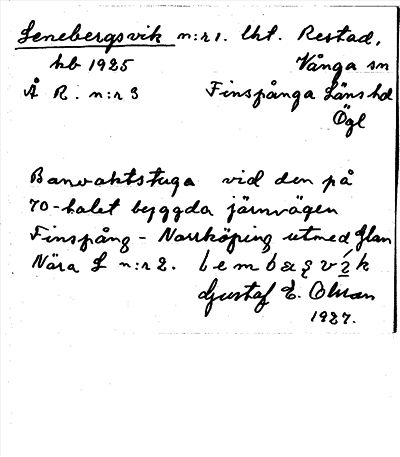 Lenebergsvik n:r 1. lht. Restad,
hb 1925 Vånga sn
Å R. n:r 3 Finspånga Läns hd
Ögl
Banvaktstuga vid den på
70-talet byggda järnvägen
Finspång - Norrköping utmed Glan
Nära L n:r 2.
Gustaf E. Olman
1927.